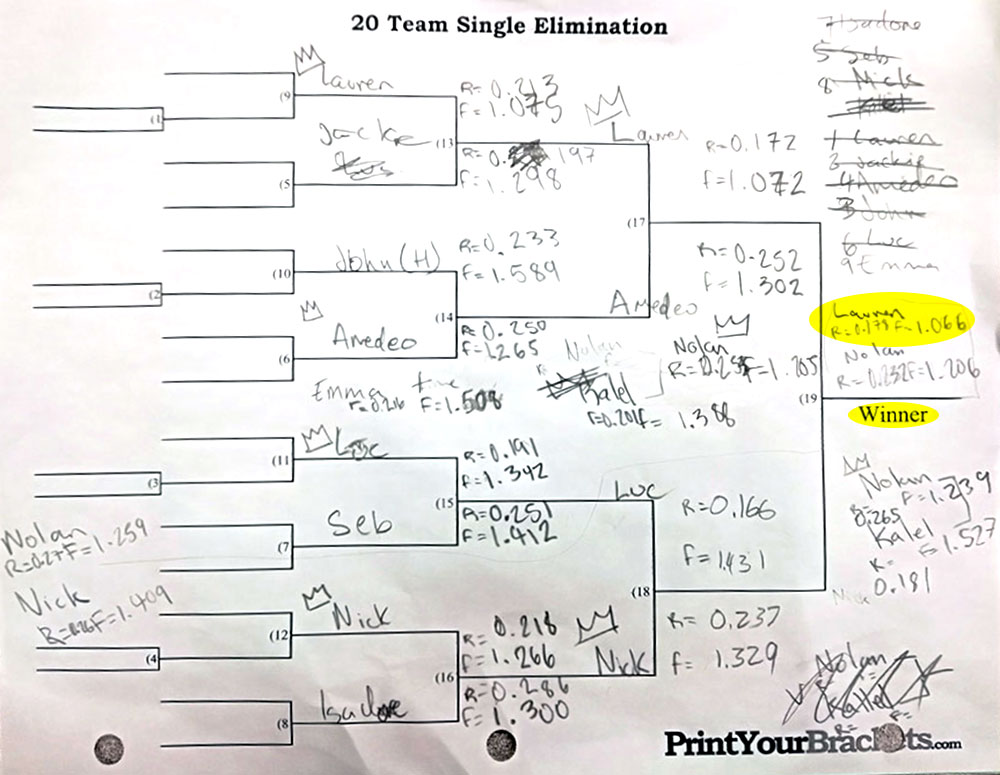 20 Team Single Elimination
7 Isadore
5 Seb
8 Nick
1 Lauren
2 Jackie
4 Amedeo
3 John
6 Luc
9 Emma
Lauren
R= 0.213
F= 1.075
(9
(1
Jackie
(13
R= 0.197
F= 1.298
(5
Lauren
R=0.172
F=1.072
(17
John (H)
R=0.233
F=1.589
(10
(2
(14
Amedeo
R= 0.250
F=1.265
(6
Amedeo
R=0.252
F=1.302
Lauren
R=0.178 F=1.066
Nolan
R=0.232 F=1.206
(19
Winner
Emma
R=0.216 F=1.508
Nolan
Kalel
F= 1.388
Nolan
(11
Luc
R=0.191
F=1.342
(3
(15
Seb
R=0.251
F=1.412
(7
Luc
R=0.166
F=1.431
(18
Nolan
F=1.239
R=
0.265
Kalel
F=1.527
R=
0.181
Nolan
F=1.259
Nick
F=1.409
Nick
R= 0.218
F=1.266
(12
(4
(16
Isadore
R=0.286
F= 1.300
(8
Nick
R= 0.237
F= 1.329
Nolan
Kalel
PrintYourBrackets.com